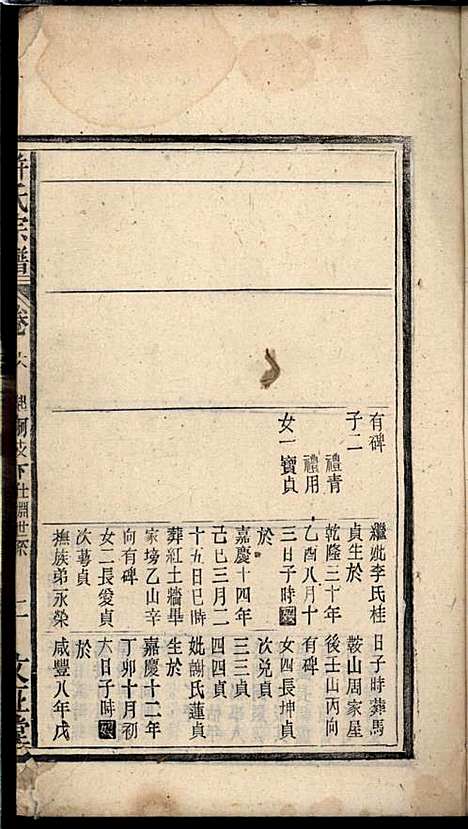 有碑
子二
禮青
禮用
女一寶貞
繼妣李氏桂
貞生於
乾隆三十年
乙酉八月十
三日子時歿
於
嘉慶十四年
己巳三月二
十五日巳時
葬紅土牆畢
家塝乙山辛
向有碑
女二長爰貞
次萼貞
撫族弟永榮
日子時葬馬
鞍山周家屋
後壬山丙向
有碑
女四長坤貞
次兑貞
三三貞
四四貞
妣謝氏蓮貞
生於
嘉慶十二年
丁卯十月初
六日子時歿
於
咸豐八年戊
許氏宗譜
卷
下仕淵世系
二